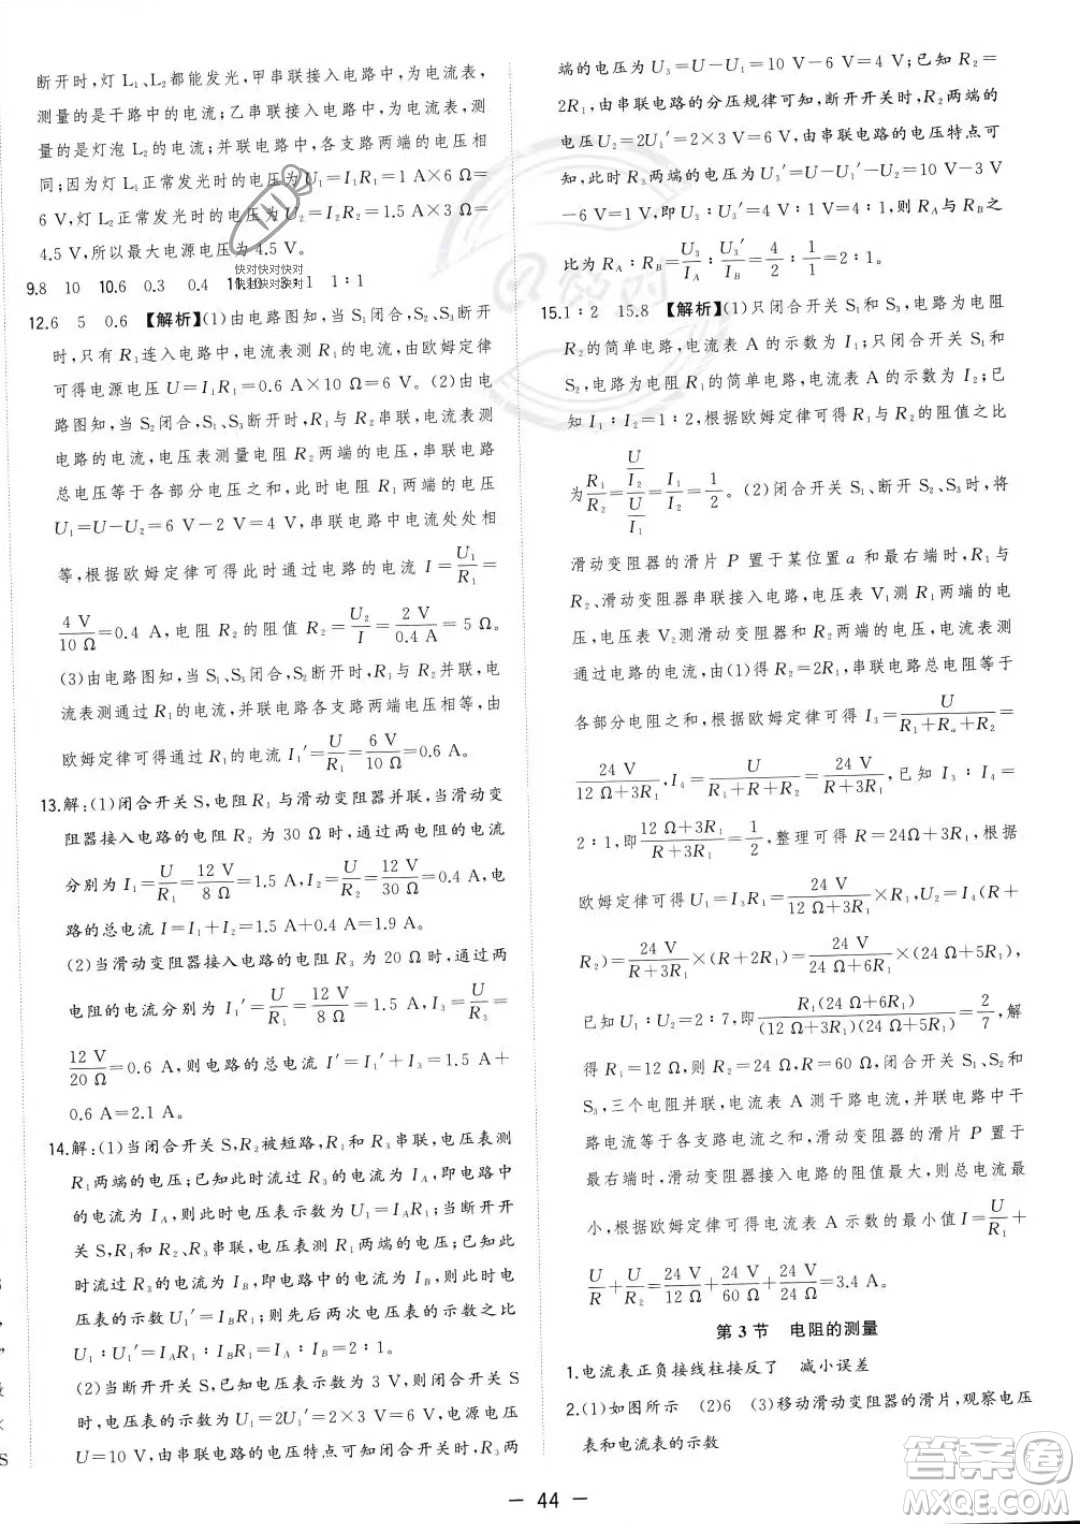 断开时,灯 L₁、L₂ 都能发光,甲串联接入电路中,为电流表,
测量的是干路中的电流;乙串联接入电路中,为电流表,测
量的是灯泡 L₂ 的电流;并联电路中,各支路两端的电压相
同;因为灯 L₁ 正常发光时的电压为 U₁=I₁R₁=1 A×6 Ω=
6 V,灯 L₂ 正常发光时的电压为 U₂=I₂R₂=1.5 A×3 Ω=
4.5 V,所以最大电源电压为 4.5 V。
9.8 10 10.6 0.3 0.4 11.10 3∶1 1∶1
12.6 5 0.6 【解析】(1)由电路图知,当 S₁ 闭合,S₂、S₃ 断开
时,只有 R₁ 连入电路中,电流表测 R₁ 的电流,由欧姆定律
可得电源电压 U=I₁R₁=0.6 A×10 Ω=6 V。(2)由电
路图知,当 S₂ 闭合,S₁、S₃ 断开时,R₁ 与 R₂ 串联,电流表测
电路的电流,电压表测量电阻 R₂ 两端的电压,串联电路
总电压等于各部分电压之和,此时电阻 R₁ 两端的电压
U₁=U−U₂=6 V−2 V=4 V,串联电路中电流处处相
等,根据欧姆定律可得此时通过电路的电流 I=U₁/R₁=
4 V/10 Ω=0.4 A,电阻 R₂ 的阻值 R₂=U₂/I=2 V/0.4 A=5 Ω。
(3)由电路图知,当 S₁、S₃ 闭合,S₂ 断开时,R₁、R₂ 并联,电
流表测通过 R₁ 的电流,并联电路各支路两端电压相等,由
欧姆定律可得通过 R₁ 的电流 I₁′=U/R₁=6 V/10 Ω=0.6 A。
13.解:(1)闭合开关 S,电阻 R₁ 与滑动变阻器并联,当滑动变
阻器接入电路的电阻 R₂ 为 30 Ω 时,通过两电阻的电流
分别为 I₁=U/R₁=12 V/8 Ω=1.5 A,I₂=U/R₂=12 V/30 Ω=0.4 A,电
路的总电流 I=I₁+I₂=1.5 A+0.4 A=1.9 A。
(2)当滑动变阻器接入电路的电阻 R₃ 为 20 Ω 时,通过两
电阻的电流分别为 I₁′=U/R₁=12 V/8 Ω=1.5 A,I₃=U/R₃=
12 V/20 Ω=0.6 A,则电路的总电流 I′=I₁′+I₃=1.5 A+
0.6 A=2.1 A。
14.解:(1)当闭合开关 S,R₂ 被短路,R₁ 和 R₃ 串联,电压表测
R₁ 两端的电压;已知此时流过 R₃ 的电流为 I_A,即电路中
的电流为 I_A,则此时电压表示数为 U₁=I_AR₁;当断开开
关 S,R₁ 和 R₂、R₃ 串联,电压表测 R₁ 两端的电压;已知此
时流过 R₃ 的电流为 I_B,即电路中的电流为 I_B,则此时电
压表的示数 U₁′=I_BR₁;则先后两次电压表的示数之比
U₁∶U₁′=I_AR₁∶I_BR₁=I_A∶I_B=2∶1。
(2)当断开开关 S,已知电压表示数为 3 V,则闭合开关 S
时,电压表的示数为 U₁=2U₁′=2×3 V=6 V,电源电压
U=10 V,由串联电路的电压特点可知闭合开关时,R₃ 两
端的电压为 U₃=U−U₁=10 V−6 V=4 V;已知 R₂=
2R₁,由串联电路的分压规律可知,断开开关时,R₂ 两端的
电压为 U₂=2U₁′=2×3 V=6 V,由串联电路的电压特点可
知,此时 R₃ 两端的电压为 U₃′=U−U₁′−U₂=10 V−3 V
−6 V=1 V,即 U₃∶U₃′=4 V∶1 V=4∶1,则 R_A 与 R_B 之
比为 R_A∶R_B=U₃/I_A∶U₃′/I_B=4/2∶1/1=2∶1。
15.1∶2 15.8 【解析】(1)只闭合开关 S₁ 和 S₃,电路为电阻
R₂ 的简单电路,电流表 A 的示数为 I₁;只闭合开关 S₁ 和
S₂,电路为电阻 R₁ 的简单电路,电流表 A 的示数为 I₂;已
知 I₁∶I₂=1∶2,根据欧姆定律可得 R₁ 和 R₂ 的阻值之比
为 R₁/R₂=(U/I₂)/(U/I₁)=I₁/I₂=1/2。(2)闭合开关 S₁、断开 S₂、S₃ 时,将
滑动变阻器的滑片 P 置于某位置 a 和最右端时,R₁ 与
R₂、滑动变阻器串联接入电路,电压表 V₁ 测 R₁ 两端的电
压,电压表 V₂ 测滑动变阻器和 R₂ 两端的电压,电流表测
通过电路的电流,由(1)得 R₂=2R₁,串联电路总电阻等于
各部分电阻之和,根据欧姆定律可得 I₃=U/(R₁+Rₐ+R₂)=
24 V/(12 Ω+3R₁),I₄=U/(R₁+R+R₂)=24 V/(R+3R₁),已知 I₃∶I₄=
2∶1,即(12 Ω+3R₁)/(R+3R₁)=1/2,整理可得 R=24Ω+3R₁,根据
欧姆定律可得 U₁=I₃R₁=24 V/(12 Ω+3R₁)×R₁,U₂=I₄(R+
R₂)=24 V/(R+3R₁)×(R+2R₁)=24 V/(24 Ω+6R₁)×(24 Ω+5R₁),
已知 U₁∶U₂=2∶7,即 R₁(24 Ω+6R₁)/((12 Ω+3R₁)(24 Ω+5R₁))=2/7,解
得 R₁=12 Ω,则 R₂=24 Ω,R=60 Ω,闭合开关 S₁、S₂ 和
S₃,三个电阻并联,电流表 A 测干路电流,并联电路中干
路电流等于各支路电流之和,滑动变阻器的滑片 P 置最
右端时,滑动变阻器接入电路的阻值最大,则总电流最
小,根据欧姆定律可得电流表 A 示数的最小值 I=U/R₁+
U/R+U/R₂=24 V/12 Ω+24 V/60 Ω+24 V/24 Ω=3.4 A。
第 3 节 电阻的测量
1.电流表正负接线柱接反了 减小误差
2.(1)如图所示 (2)6 (3)移动滑动变阻器的滑片,观察电压
表和电流表的示数
— 44 —
答案圈
MXQE.COM